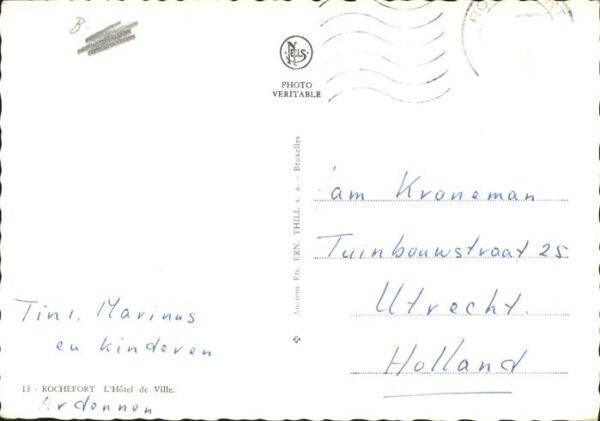 B-
NELS
PHOTO
VERITABLE
Anciens Ets. ERN. THILL s. a. - Bruxelles
Kroneman
Tuinbouwstraat 25
Utrecht.
Holland
Tini, Marinus
en kinderen
13 - ROCHEFORT L'Hôtel de Ville.
Ardennen